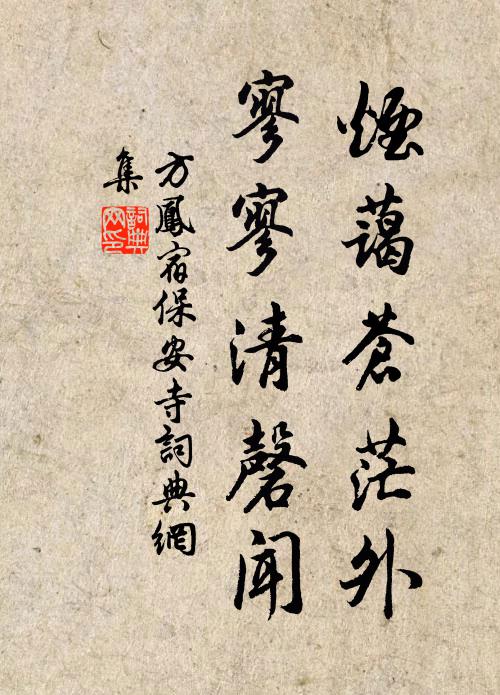 煙藹蒼茫外
寥寥清磬聞
方鳳宿保安寺詞典網
集
詞典
网印